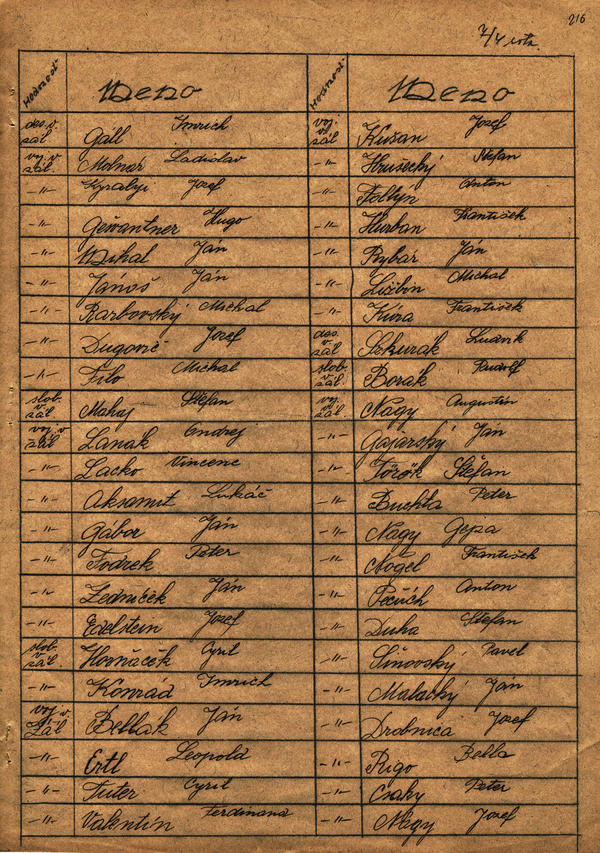 216
7/4 rota.
Hodnosť Meno
des. v zál. Gáll Imrich
voj. v zál. Molnár Ladislav
-"- Kyralyi Jozef
-"- Gewantner Hugo
-"- Mihal Ján
-"- Jánoš Ján
-"- Barbovský Michal
-"- Dugovič Jozef
-"- Filo Michal
slob. v zál. Mahaj Štefan
voj. v zál. Lanák Ondrej
-"- Lacko Vincenc
-"- Aksamit Lukáč
-"- Gábor Ján
-"- Fodrek Peter
-"- Zedníček Ján
-"- Edelstein Jozef
slob. v zál. Horňáček Cyril
-"- Konrád Imrich
voj. v zál. Bellák Ján
-"- Ertl Leopold
-"- Futer Cyril
-"- Valentín Ferdinand
Hodnosť Meno
voj. v zál. Kužan Jozef
-"- Hrušecký Štefan
-"- Foltyn Anton
-"- Hurban František
-"- Rybár Ján
-"- Ližbon Michal
-"- Kúra František
des. v zál. Sekurák Ludvik
slob. v zál. Borák Rudolf
voj. v zál. Nagy Augustín
-"- Gajarský Ján
-"- Török Štefan
-"- Buchta Peter
-"- Nagy Gejza
-"- Nogel František
-"- Pecúch Anton
-"- Duha Štefan
-"- Šinovský Pavel
-"- Malacký Ján
-"- Drobnica Jozef
-"- Rigo Bella
-"- Csaky Peter
-"- Nagy Jozef